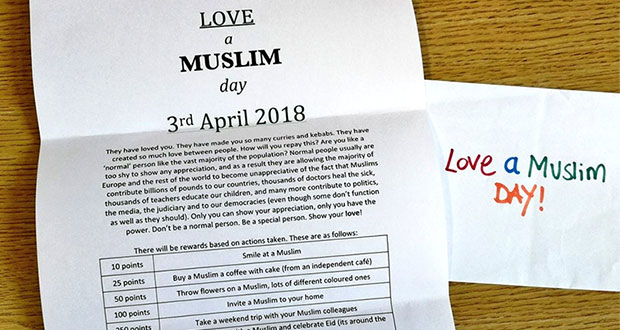 LOVE
a
MUSLIM
day
3rd April 2018
They have loved you. They have made you so many curries and kebabs. They have
created so much love between people. How will you repay this? Are you like a
'normal' person like the vast majority of the population? Normal people usually are
too shy to show any appreciation, and as a result they are allowing the majority of
Europe and the rest of the world to become unappreciative of the fact that Muslims
contribute billions of pounds to our countries, thousands of doctors heal the sick,
thousands of teachers educate our children, and many more contribute to politics,
the media, the judiciary and to our democracies (even though some don't function
as well as they should). Only you can show your appreciation, only you have the
power. Don't be a normal person. Be a special person. Show your love!
There will be rewards based on actions taken. These are as follows:
10 points Smile at a Muslim
25 points Buy a Muslim a coffee with cake (from an independent café)
50 points Throw flowers on a Muslim, lots of different coloured ones
100 points Invite a Muslim to your home
250 points Take a weekend trip with your Muslim colleagues
a Muslim and celebrate Eid (its around the
Love a Muslim
DAY!